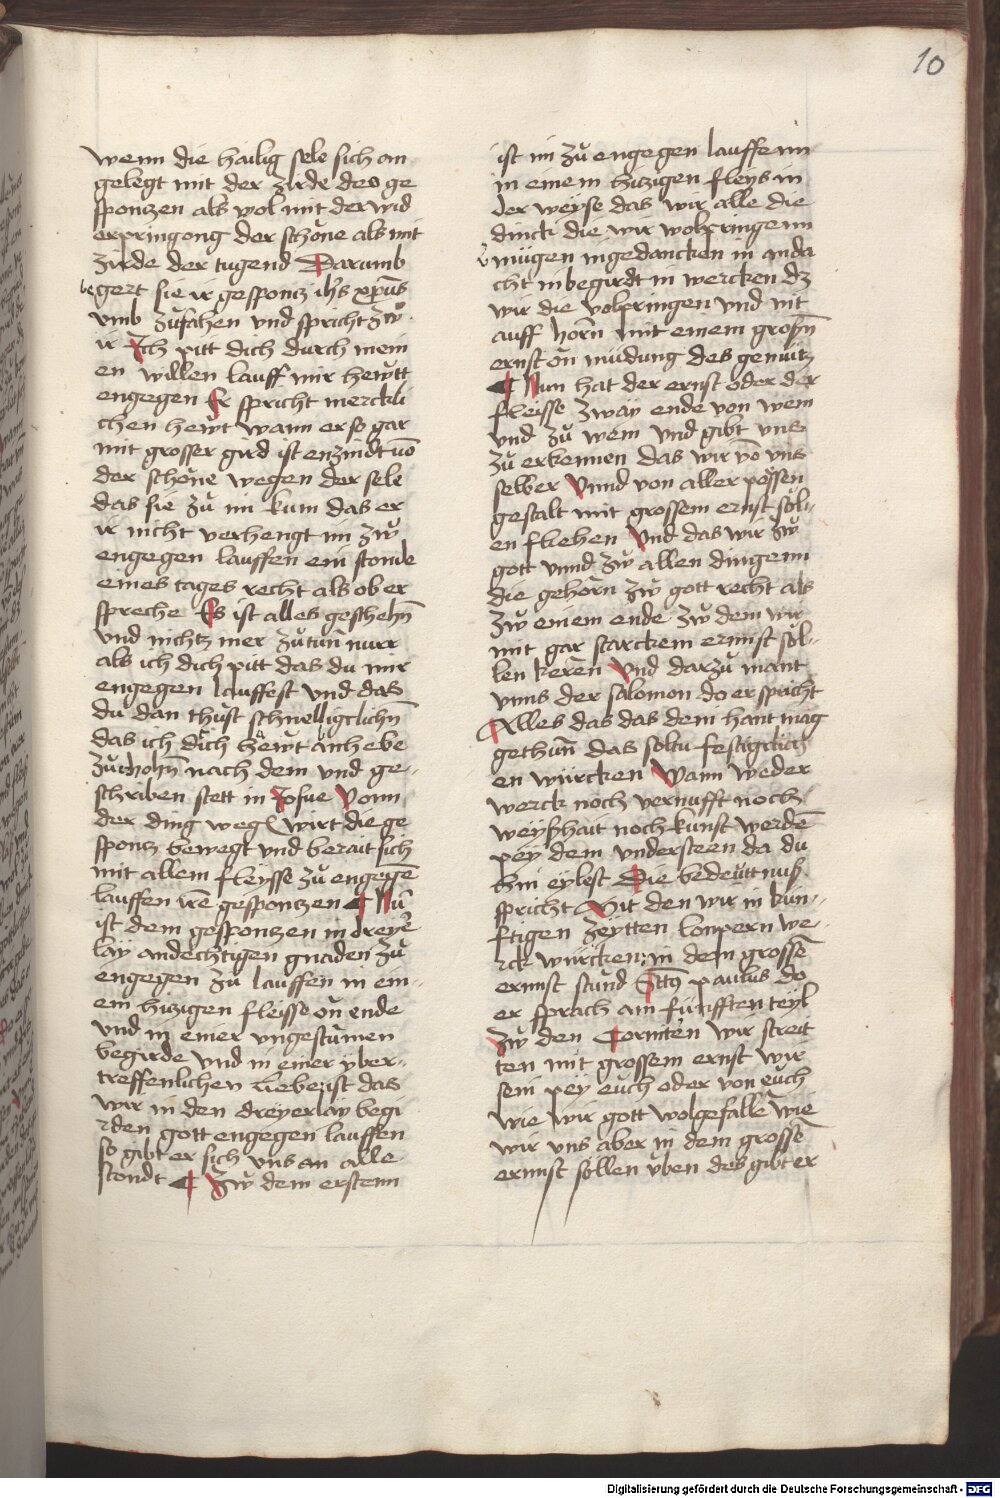 10
wenn die hailig sele sich an
gelegt mit der zirde des ge
sponczen als wol mit der wid
erpringong der schöne als mit
zirde der tugend Darumb
begert sie ir gesponcz ihs xp̄us
vmb zůfahen vnd spricht zw̌
ir Ich pitt dich durch mein
en willen lauff mir hewtt
engegen Er spricht merckli
chen hewt wann er so gar
mit grosser gird ist enzindt uō
der schöne wegen der sele
das sie zů im kum das er
ir nicht verhengt im zw̌
engegen lauffen ein stonde
eines tages recht als ob er
spreche Es ist alles geschehn̄
vnd nichtz mer zůtun nurr
als ich dich pitt das du mir
engegen lauffest vnd das
du dan thůst schnelligclichn̄
das ich dich hewt anhebe
zůerhohn̄ nach dem vnd ge-
schriben stett in Josue Vonn
der ding weg wirt die ge
sponcz bewegt vnd berait sich
mit allem fleysse zu engegē
lauffen irē gesponczen ¶ Nū
ist dem gesponczen in dreyer
lay andechtigen gnaden zů
engegen zů lauffen in ein-
em hiczigen fleisse on ende
vnd in einer vngestůmen
begirde vnd in einer vber-
treffenlichen liebe ist das
wir in den dreyerlay begi
rden gott engegen lauffen
so gibt er sich vns an alle
stondt ¶ Zw̌ dem erstenn
ist im zů engegen lauffenn
in einem hiczigen fleys in
der weyse das wir alle die
dinck die wir wolpringenn
mügen in gedancken in anda
cht in begirdt in wercken dz
wir die volpringen vnd nit
auff horn̄ mit einem grosn̄
ernst on müdung des gemütz
¶ Nun hat der ernst oder der
fleisse zway ende von wem
vnd zů wem vnd gibt vns
zů erkennen das wir vō vns
selber Vnnd von aller pössen
gestalt mit grossem ernst söll-
en fliehen Vnd das wir zw̌
gott vnnd zw̌ allen dingenn
die gehörn zw̌ gott recht als
zw̌ einem ende zw̌ dem wir
mit gar starckem ernnst söl-
len keren Vnd darzů mant
vnns der salomon do er spricht
Alles das das dem hant mag
gethun̄ das soltu festigclich
en würcken Wann weder
werck noch vernufft noch
weyszhait noch kunst werdē
pey dem vndersteen da du
hin eylest Die bedeüttnus
spricht Mit den wir in kün-
ftigen zeytten lonpern we-
rck würcken in dem grossē
ernnst stund Sttus paulus do
er sprach am fünfften teyl
zw̌ den Cornitern wir streit
ten mit grossem ernst wir
sein pey euch oder von euch
wie wir gott wolgefallē wie
wir vns aber in dem grossē
ernnst söllen vben des gibt er
Digitalisierung gefördert durch die Deutsche Forschungsgemeinschaft - DFG